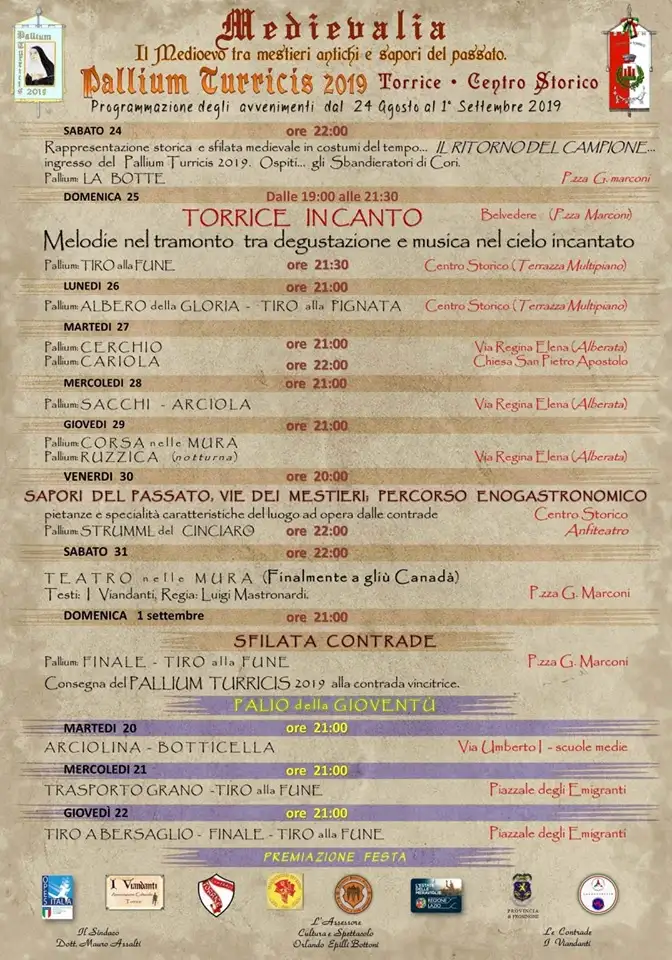 Medievalia
Il Medioevo tra mestieri antichi e sapori del passato.
Pallium Turricis 2019 Torrice • Centro Storico
Programmazione degli avvenimenti dal 24 Agosto al 1° Settembre 2019
Pallium
2019
SABATO 24 ore 22:00
Rappresentazione storica e sfilata medievale in costumi del tempo... IL RITORNO DEL CAMPIONE...
ingresso del Pallium Turricis 2019. Ospiti... gli Sbandieratori di Cori.
Pallium: LA BOTTE P.zza G. marconi
DOMENICA 25 Dalle 19:00 alle 21:30
TORRICE IN CANTO Belvedere (P.zza Marconi)
Melodie nel tramonto tra degustazione e musica nel cielo incantato
Pallium: TIRO alla FUNE ore 21:30 Centro Storico (Terrazza Multipiano)
LUNEDI 26 ore 21:00
Pallium: ALBERO della GLORIA - TIRO alla PIGNATA Centro Storico (Terrazza Multipiano)
MARTEDI 27
Pallium: CERCHIO ore 21:00 Via Regina Elena (Alberata)
Pallium: CARIOLA ore 22:00 Chiesa San Pietro Apostolo
MERCOLEDI 28 ore 21:00
Pallium: SACCHI - ARCIOLA Via Regina Elena (Alberata)
GIOVEDI 29 ore 21:00
Pallium: CORSA nelle MURA
Pallium: RUZZICA (notturna) Via Regina Elena (Alberata)
VENERDI 30 ore 20:00
SAPORI DEL PASSATO, VIE DEI MESTIERI; PERCORSO ENOGASTRONOMICO
pietanze e specialità caratteristiche del luogo ad opera dalle contrade Centro Storico
Pallium: STRUMML del CINCIARO ore 22:00 Anfiteatro
SABATO 31 ore 22:00
TEATRO nelle MURA (Finalmente a gliù Canadà)
Testi: I Viandanti, Regia: Luigi Mastronardi. P.zza G. Marconi
DOMENICA 1 settembre ore 21:00
SFILATA CONTRADE
Pallium: FINALE - TIRO alla FUNE P.zza G. Marconi
Consegna del PALLIUM TURRICIS 2019 alla contrada vincitrice.
PALIO della GIOVENTÙ
MARTEDI 20 ore 21:00
ARCIOLINA - BOTTICELLA Via Umberto I - scuole medie
MERCOLEDI 21 ore 21:00
TRASPORTO GRANO - TIRO alla FUNE Piazzale degli Emigranti
GIOVEDÌ 22 ore 21:00
TIRO A BERSAGLIO - FINALE - TIRO alla FUNE Piazzale degli Emigranti
PREMIAZIONE FESTA
OPES ITALIA
I Viandanti
REGIONE LAZIO
PROVINCIA
Il Sindaco
Dott. Mauro Assalti
L'Assessore
Cultura e Spettacolo
Orlando Epilli Bottoni
Le Contrade
I Viandanti